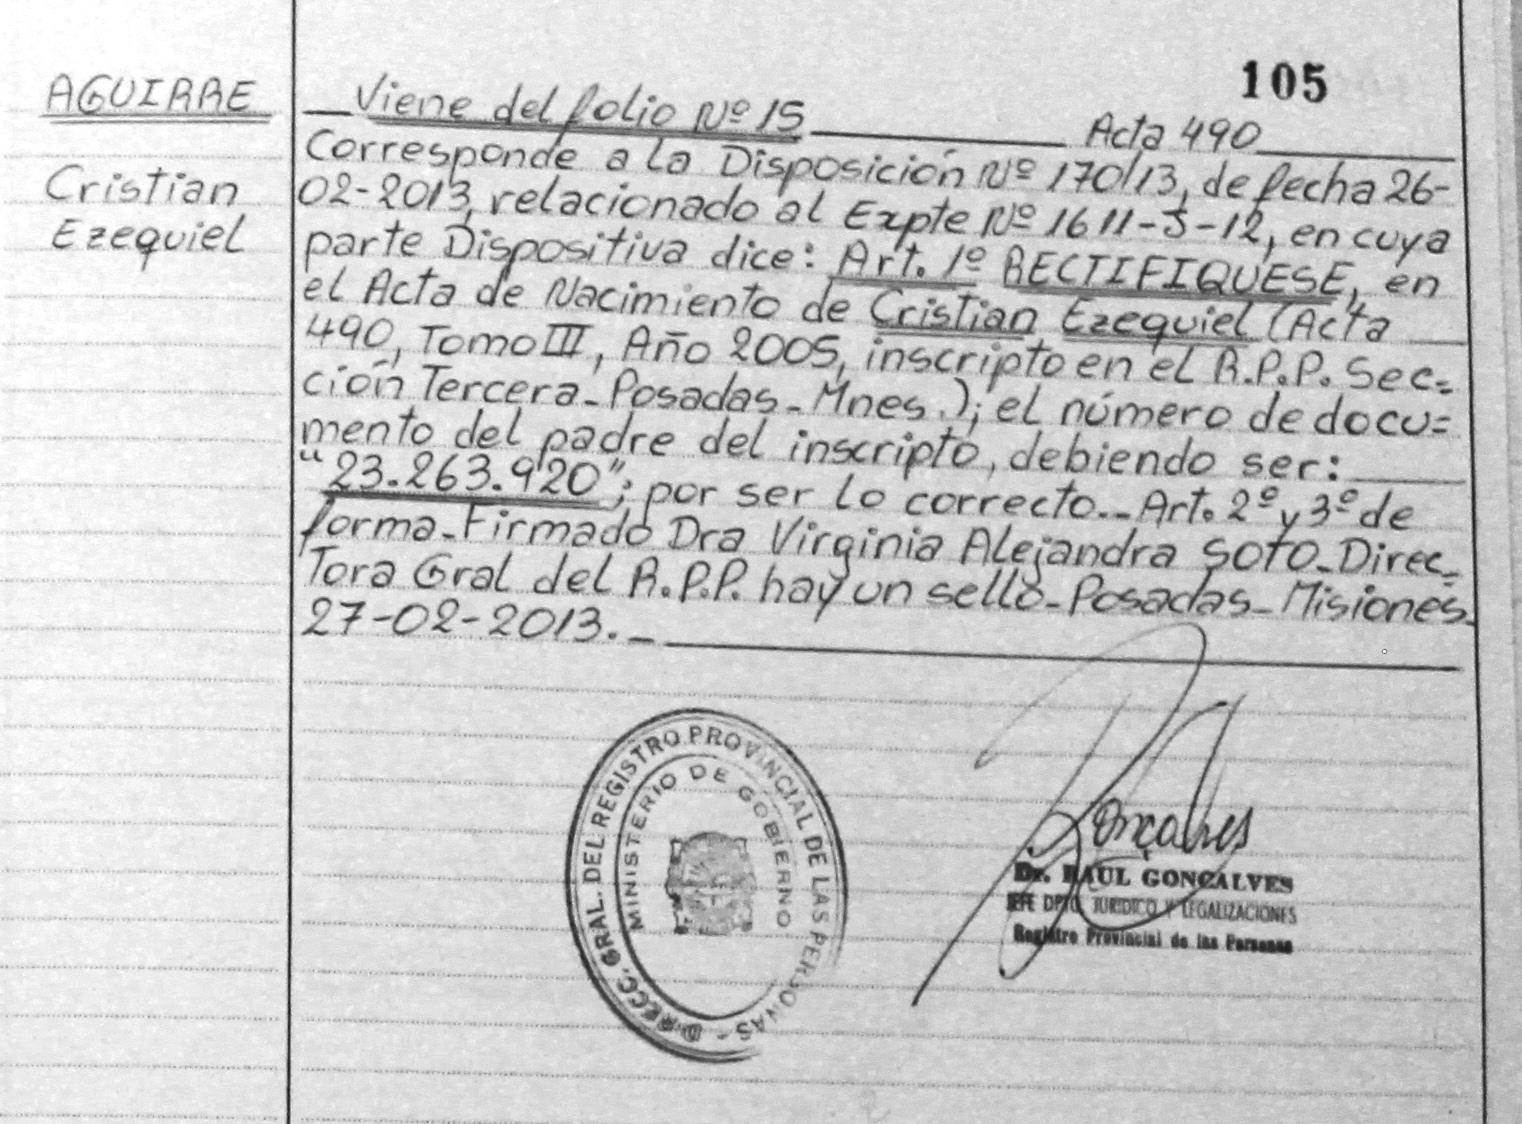 105
AGUIRRE
Cristian
Ezequiel
Viene del folio Nº 15 Acta 490
Corresponde a la Disposición Nº 170/13, de fecha 26-
02-2013, relacionado al Expte Nº 1611-S-12, en cuya
parte Dispositiva dice: Art. 1º RECTIFIQUESE, en
el Acta de Nacimiento de Cristian Ezequiel (Acta
490, Tomo III, Año 2005, inscripto en el R.P.P. Sec=
ción Tercera-Posadas-Mnes.); el número de docu=
mento del padre del inscripto, debiendo ser:
"23.263.920"; por ser lo correcto.- Art. 2º y 3º de
forma-Firmado Dra Virginia Alejandra SOTO-Direc=
tora Gral del R.P.P. hay un sello-Posadas-Misiones
27-02-2013.-
DIRECC. GRAL. DEL REGISTRO PROVINCIAL DE LAS PERSONAS -
MINISTERIO DE GOBIERNO
Gonçalves
Dr. RAUL GONÇALVES
JEFE DPTO. JURIDICO Y LEGALIZACIONES
Registro Provincial de las Personas